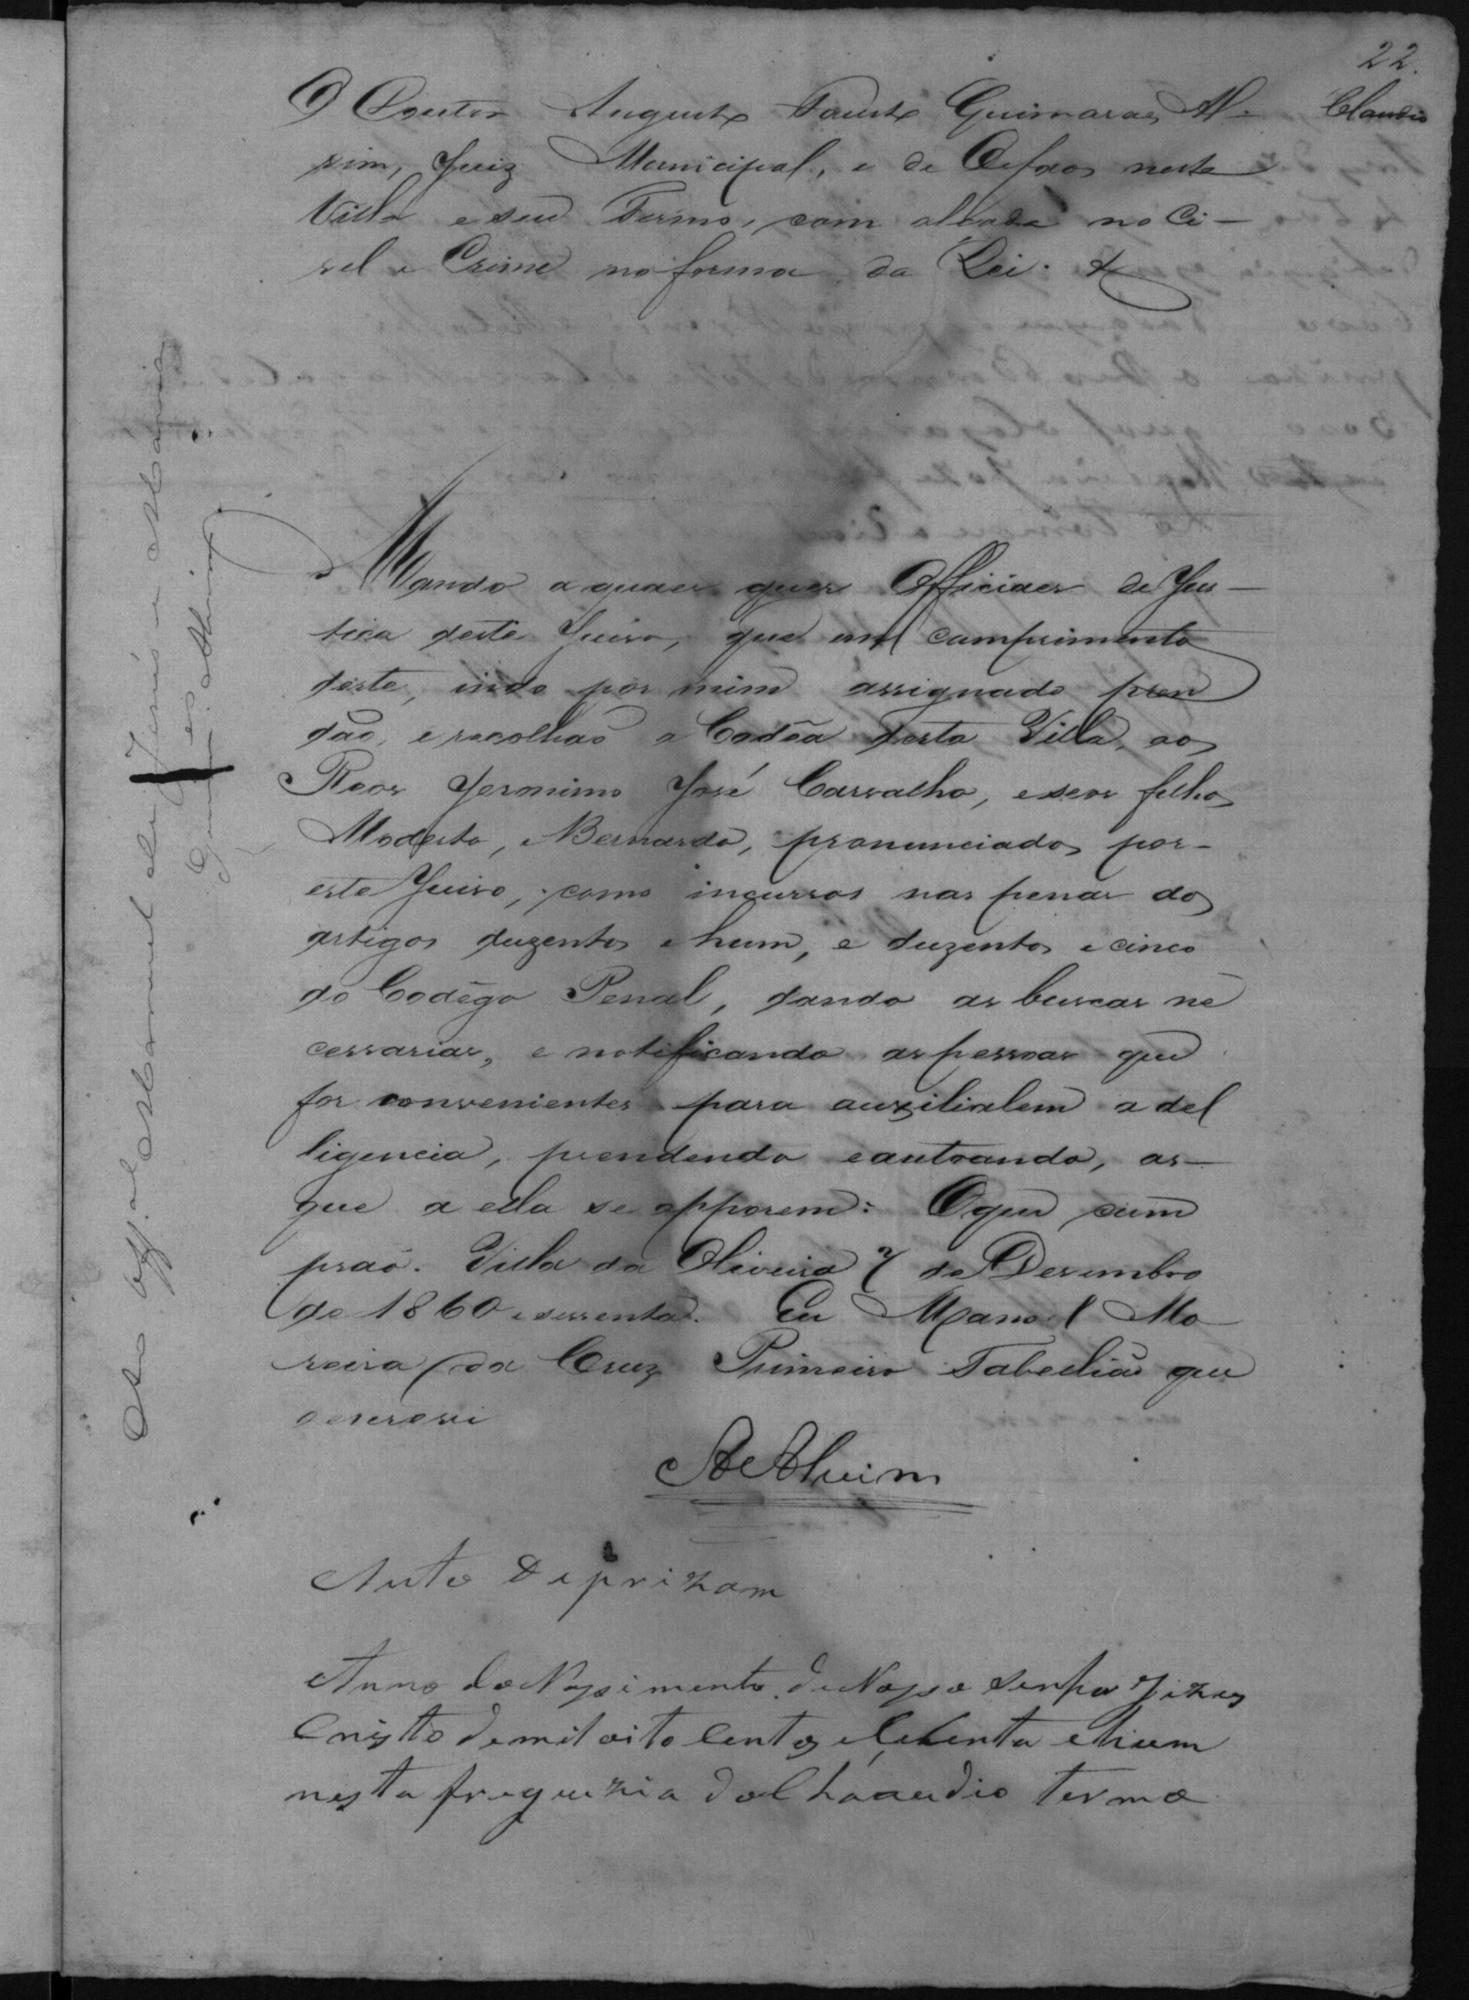 22.
Claudio
O Doutor Augusto Fausto Guimaraes Al-
vim, Juiz Municipal, e de Orfaos nesta
Villa e seu Termo, com alçada no Ci-
vel e Crime na forma da Lei. &
Mando a quaes quer Officiaes de Jus-
tiça deste Juiso, que em cumprimento
deste, indo por mim assignado pren
dão, e recolhão a Cadêa desta Villa, aos
Reos Jeronimo José Carvalho, e seos filhos
Modesto, e Bernardo, pronunciados por-
este Juiso, como incursos nas penas dos
artigos duzentos e hum, e duzentos e cinco
do Codêgo Penal, dando as buscas ne
cessarias, e notificando as pessoas que
for convenientes para auxilialem a del
ligencia, prendendo e autoando, as-
que a ella se opporem: O que cum
praõ. Villa da Oliveira 7 de Desembro
de 1860 e sessenta. Eu Manoel Mo
reira da Cruz Primeiro Tabelliaõ que
o escrevi
A Alvim
Auto de prizam
Anno do Nascimento de Nosso Senhor Jizus
Cristo de mil oito centos e Cecenta e hum
nesta freguezia do Claudio termo
Ao Off.al Manoel de Jesus e Maria
Guimaes. Alvim.